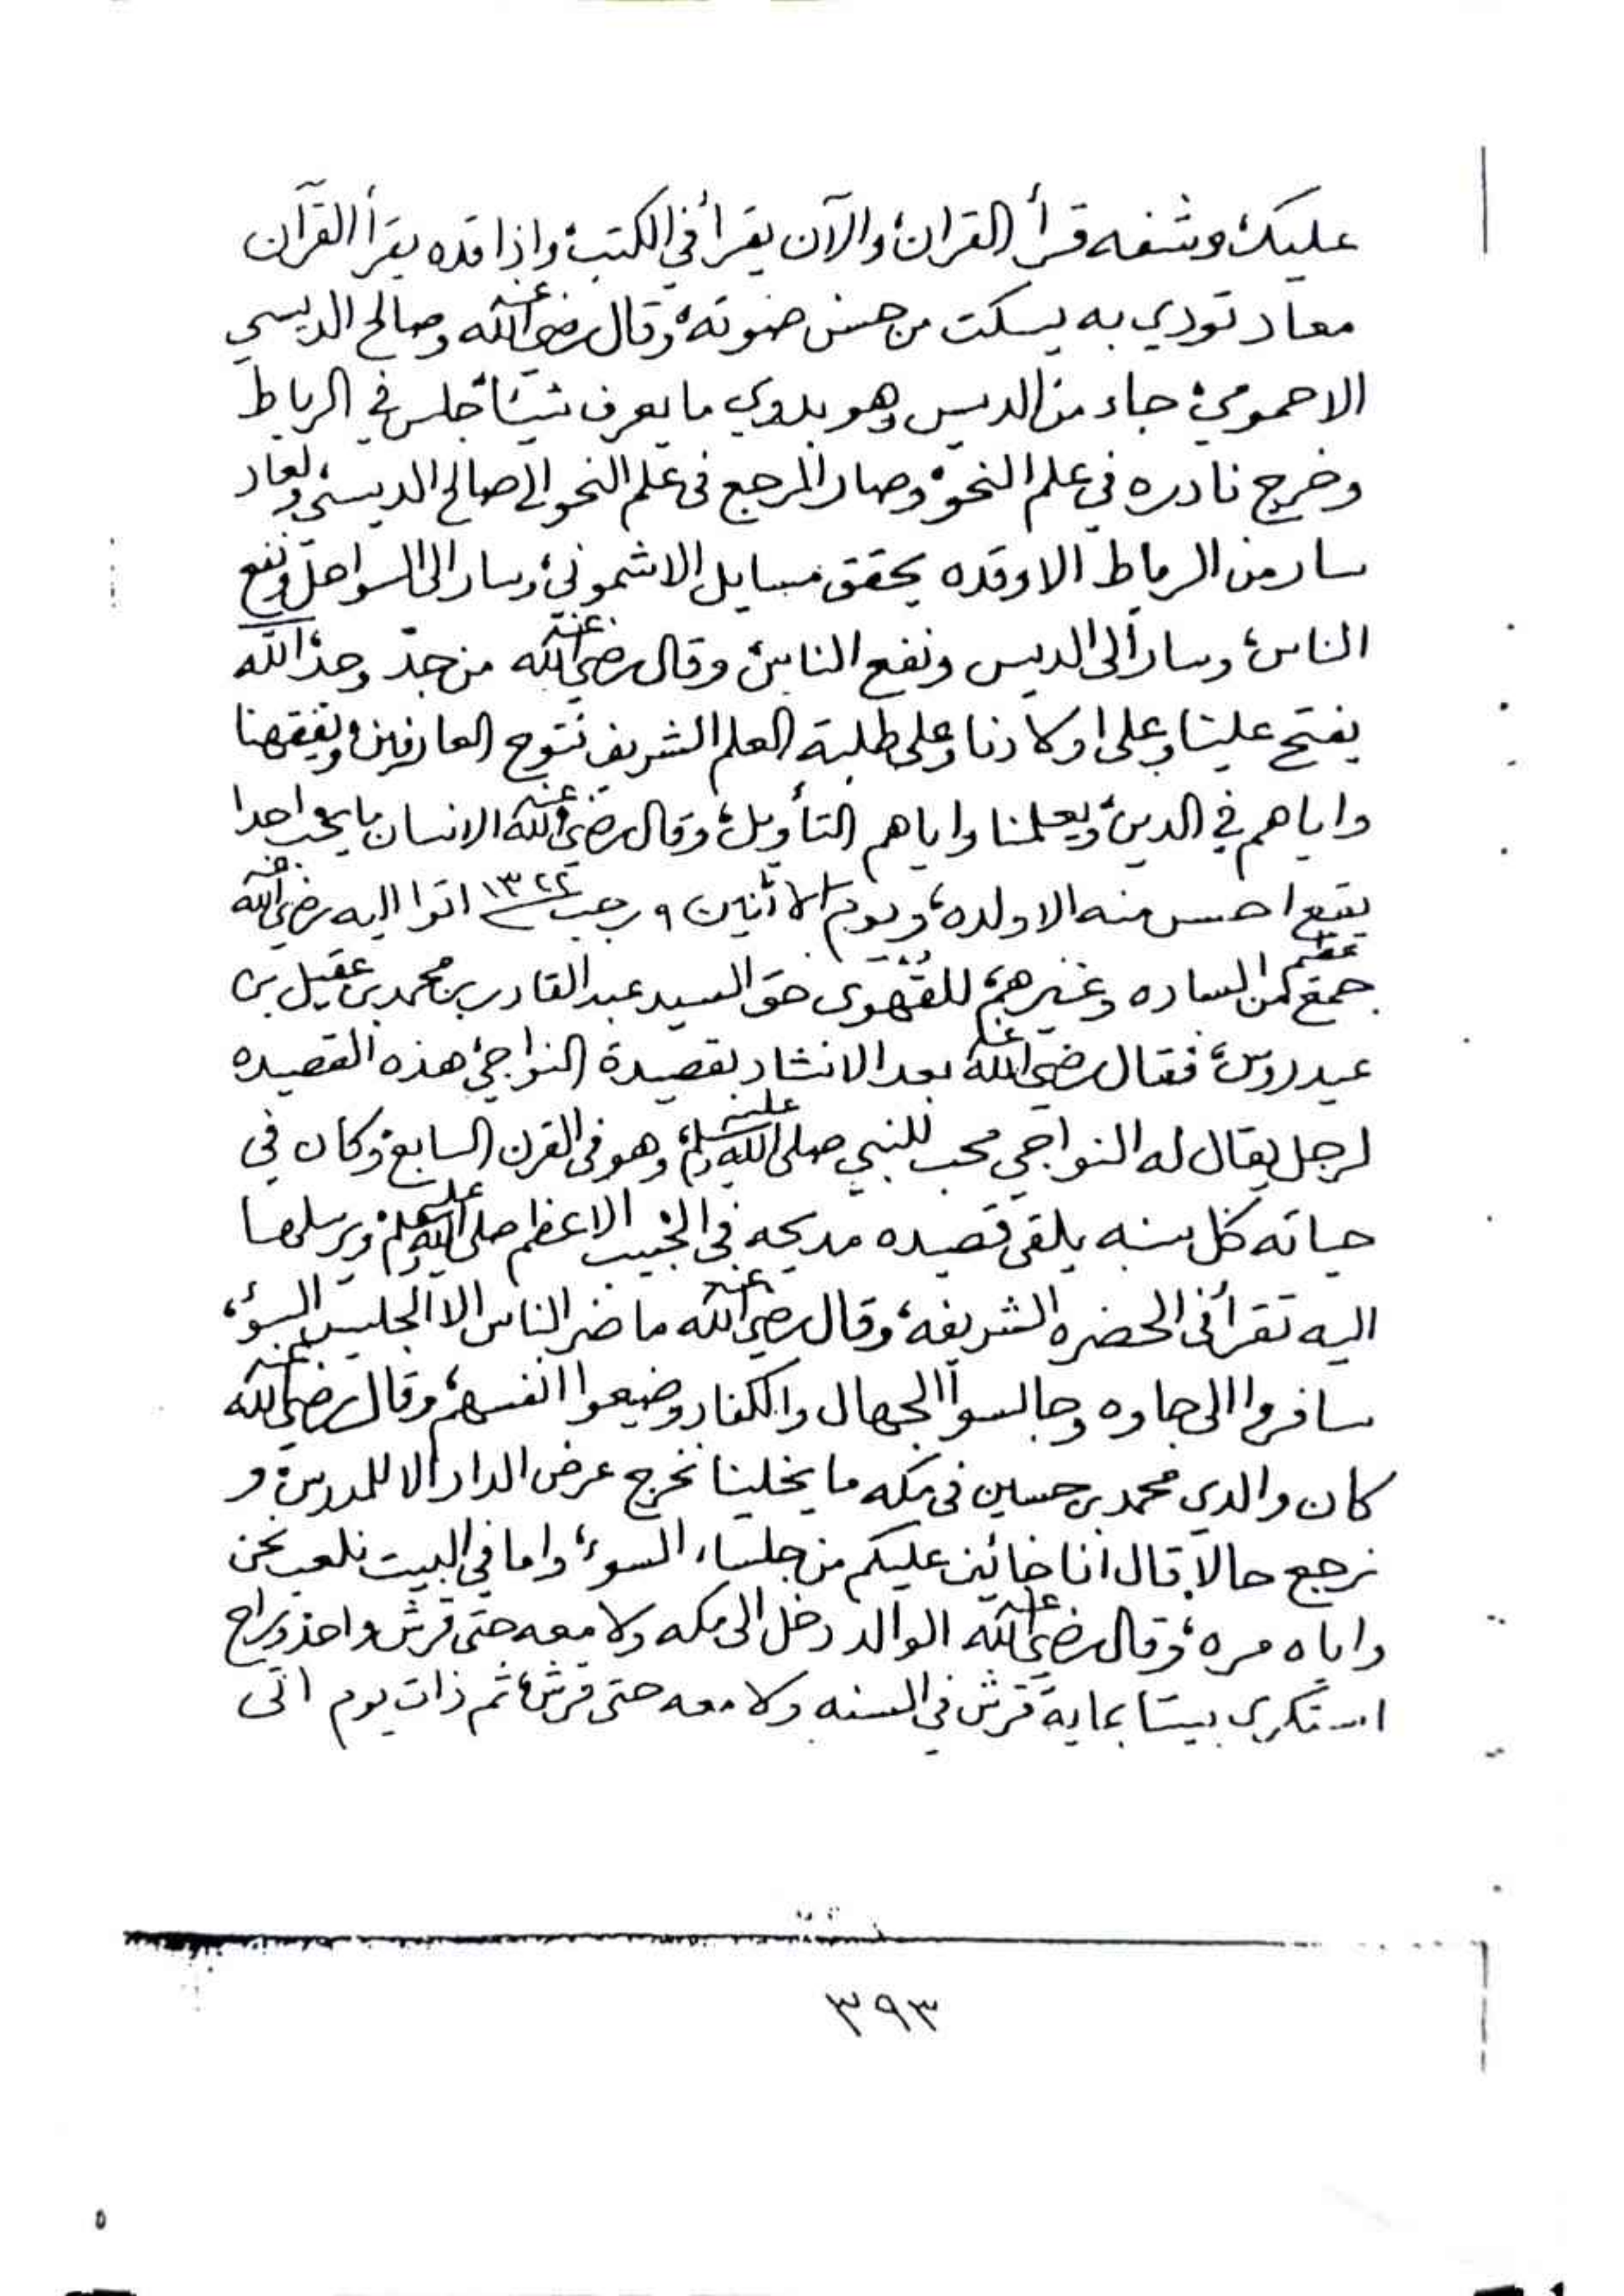 عليك، وشفه قرأ القران، والآن يقرأ في الكتب، واذا قده يقرأ القرآن
معاد تودي به يسكت من حسن صوته، وقال رضي الله عنه وصالح الديسي
الاحمومي، جاء من الديس وهو بدوي ما يعرف شيئا، جلس في الرباط
وخرج نادره في علم النحو، وصار المرجع في علم النحو الى صالح الديسي، ولعاد
سار من الرباط الا وقده يحقق مسايل الاشموني، وسار الى السواحل ونفع
الناس، وسار الى الديس ونفع الناس، وقال رضي الله عنه من جدّ وجد، الله
يفتح علينا وعلى اولادنا وعلى طلبة العلم الشريف فتوح العارفين، ويفقهنا
واياهم في الدين، ويعلمنا واياهم التأويل، وقال رضي الله عنه الانسان ما يحب احدا
يقع احسن منه الا ولده، ويوم الاثنين ٩ رجب ١٣٢٢ اتوا اليه رضي الله عنه
جمع عظيم من الساده وغيرهم، للقهوى حق السيد عبدالقادر بن محمد بن عقيل بن
عيدروس، فقال رضي الله عنه بعد الانشاد بقصيدة النواجي، هذه القصيده
لرجل يقال له النواجي محب للنبي صلى الله عليه وسلم، وهو في القرن السابع، وكان في
حياته كل سنه يلقي قصيده مديحه في الحبيب الاعظم صلى الله عليه وسلم، ويرسلها
اليه تقرأ في الحضره الشريفه، وقال رضي الله عنه ما ضر الناس الا الجليس السؤ،
سافروا الى جاوه وجالسوا الجهال والكفار وضيعوا انفسهم، وقال رضي الله عنه
كان والدي محمد بن حسين في مكه ما يخلينا نخرج عرض الدار الا للمدرس، و
نرجع حالا، قال انا خائف عليكم من جلساء السوء، واما في البيت نلعب نحن
واياه مره، وقال رضي الله عنه الوالد دخل الى مكه ولا معه حتى قرش واحد، وراح
استكرى بيتا بماية قرش في السنه ولا معه حتى قرش، ثم ذات يوم اتى
٣٩٣